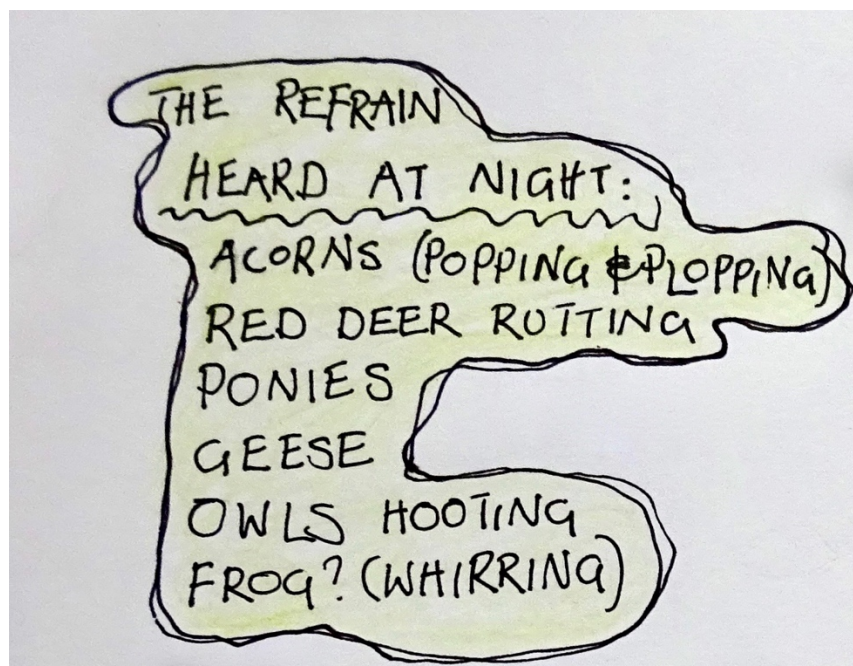 THE REFRAIN
HEARD AT NIGHT:
ACORNS (POPPING & PLOPPING)
RED DEER RUTTING
PONIES
GEESE
OWLS HOOTING
FROG? (WHIRRING)